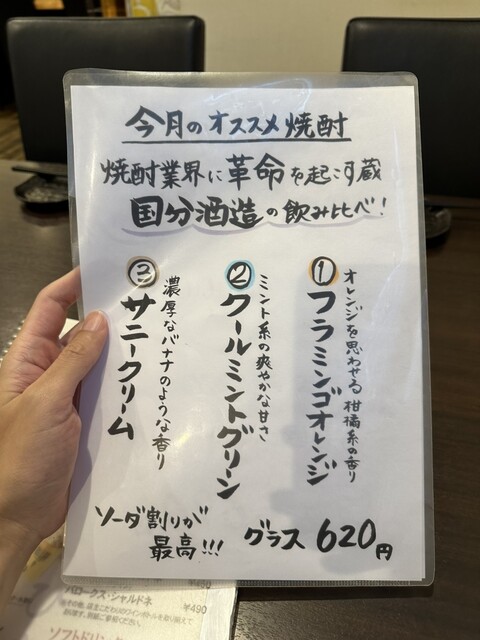 今月のオススメ焼酎
焼酎業界に革命を起こす蔵
国分酒造の飲み比べ!
① フラミンゴオレンジ
オレンジを思わせる柑橘系の香り
② クールミントグリーン
ミント系の爽やかな甘さ
③ サニークリーム
濃厚なバナナのような香り
ソーダ割りが
最高!!!
グラス 620円
¥490
バロークス・シャルドネ
¥490